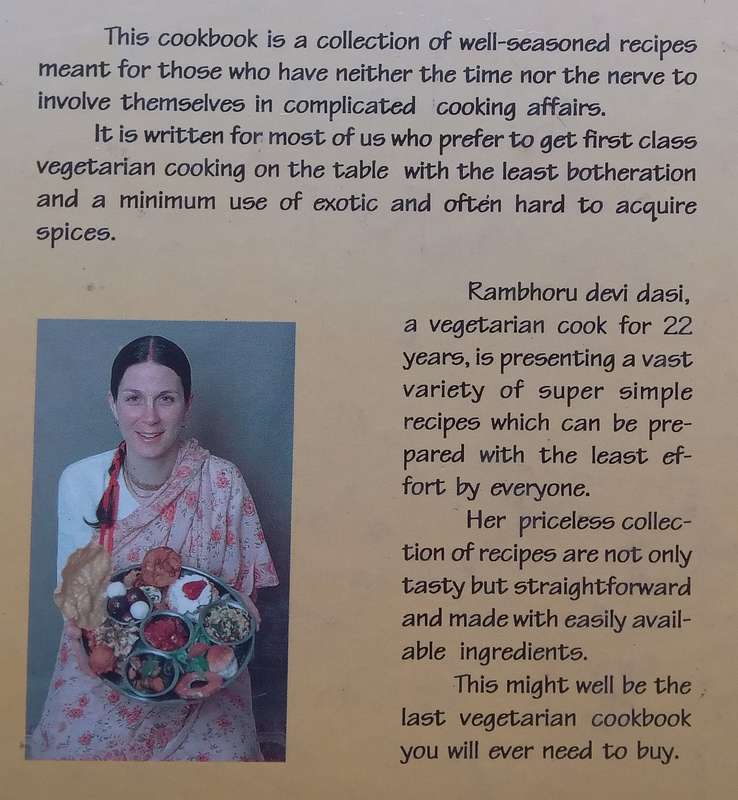 This cookbook is a collection of well-seasoned recipes
meant for those who have neither the time nor the nerve to
involve themselves in complicated cooking affairs.
It is written for most of us who prefer to get first class
vegetarian cooking on the table with the least botheration
and a minimum use of exotic and often hard to acquire
spices.
Rambhoru devi dasi,
a vegetarian cook for 22
years, is presenting a vast
variety of super simple
recipes which can be pre-
pared with the least ef-
fort by everyone.
Her priceless collec-
tion of recipes are not only
tasty but straightforward
and made with easily avail-
able ingredients.
This might well be the
last vegetarian cookbook
you will ever need to buy.